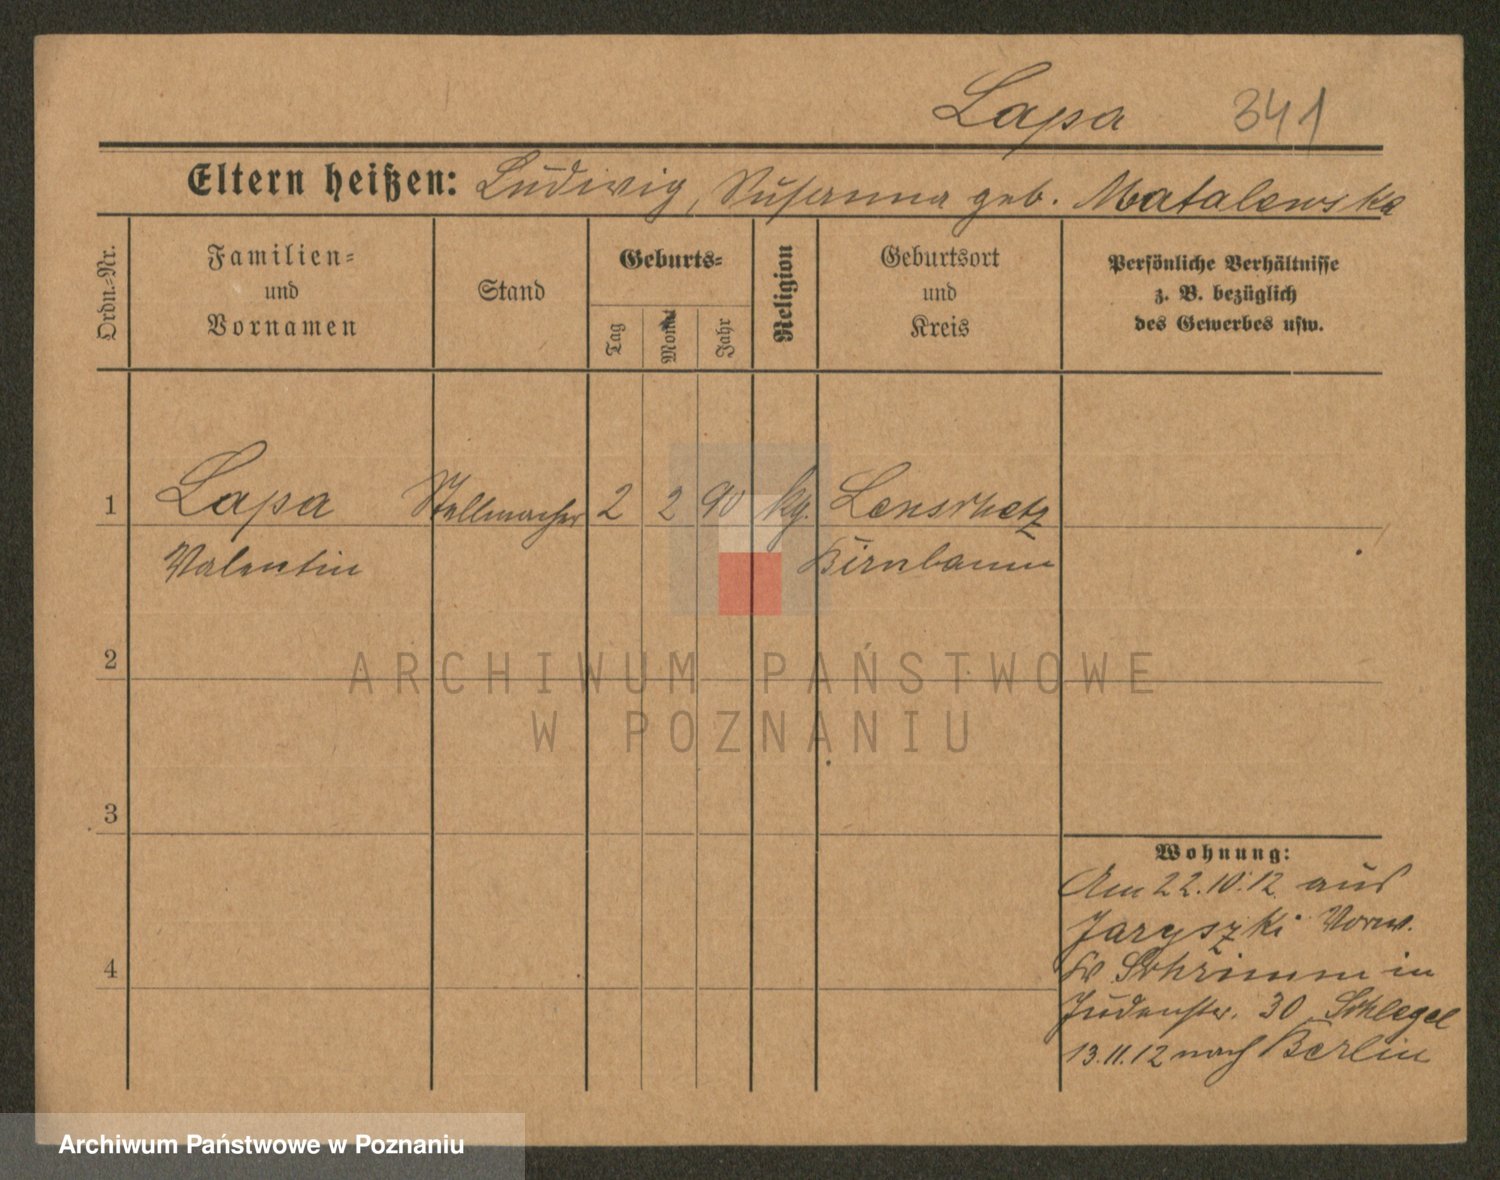 Lapa 341
Eltern heißen: Ludwig, Susanna geb. Matalewska
Ordn.-Nr.
Familien-
und
Vornamen
Stand
Geburts-
Tag
Monat
Jahr
Religion
Geburtsort
und
Kreis
Persönliche Verhältnisse
z. B. bezüglich
des Gewerbes usw.
1 Lapa Stellmacher 2 2 90 kg. Lenschetz
Valentin Birnbaum
2
3
4
Wohnung:
Am 22.10.12 aus
Jaryszki Vorw.
Kr Schrimm in
Judenstr. 30 Schlegel
13.11.12 nach Berlin
ARCHIWUM PAŃSTWOWE
W POZNANIU
Archiwum Państwowe w Poznaniu